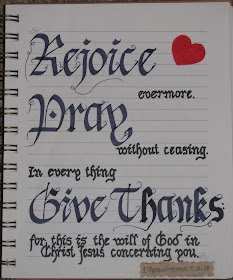 Rejoice
evermore.
Pray,
without ceasing.
In every thing
Give Thanks
for this is the will of God in
Christ Jesus concerning you.
1 Thessalonians 5:16-18